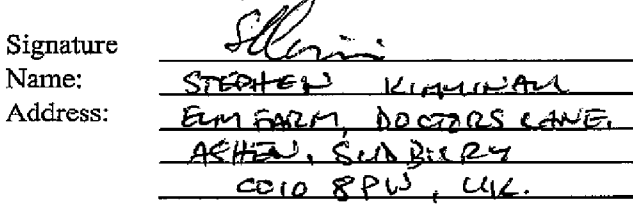 Signature
Name: STEPHEN
Address: ELM FARM, DOCTORS LANE,
ASHEN, SUDBURY
CO10 8PW, UK.